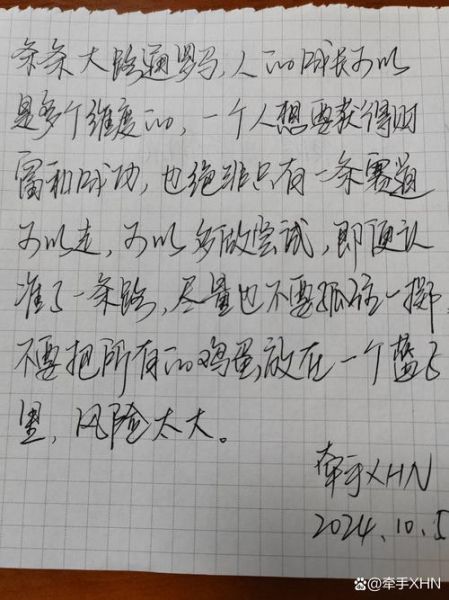 条条大路通罗马，人的成长可以
是多个维度的，一个人想要获得财
富和成功，也绝非只有一条赛道
可以走，可以多做尝试，即便认
准了一条路，尽量也不要孤注一掷，
不要把所有的鸡蛋放在一个篮子
里，风险太大。
牵手XHN
2024.10.5
@牵手XHN